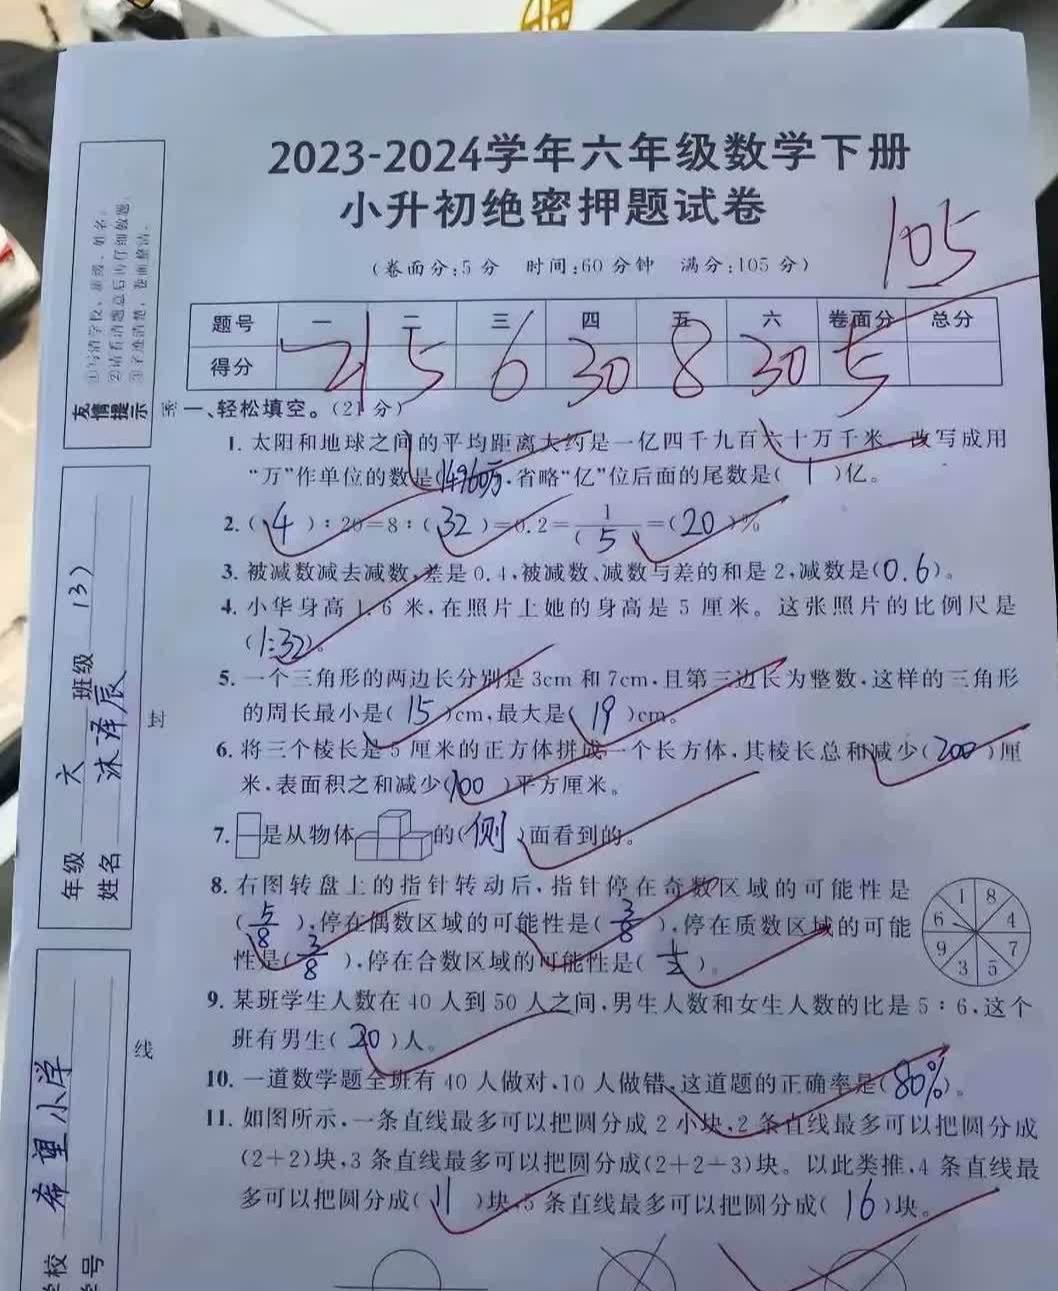 2023-2024学年六年级数学下册
小升初绝密押题试卷
105
(卷面分:5分 时间:60分钟 满分:105分)
题号 一 二 三 四 五 六 卷面分 总分
得分 21 5 6 30 8 30 5
一、轻松填空。(21分)
1. 太阳和地球之间的平均距离大约是一亿四千九百六十万千米,改写成用
“万”作单位的数是(14960万,省略“亿”位后面的尾数是( 1 )亿。
2. ( 4 ):20=8:( 32 )=0.2=1/(5)=(20)%
3. 被减数减去减数,差是0.4,被减数、减数与差的和是2,减数是(0.6)。
4. 小华身高1.6米,在照片上她的身高是5厘米。这张照片的比例尺是
(1:32)。
5. 一个三角形的两边长分别是3cm和7cm,且第三边长为整数,这样的三角形
的周长最小是( 15 )cm,最大是( 19 )cm。
6. 将三个棱长是5厘米的正方体拼成一个长方体,其棱长总和减少(200)厘
米,表面积之和减少(100)平方厘米。
7. 是从物体的(侧)面看到的。
8. 右图转盘上的指针转动后,指针停在奇数区域的可能性是
(5/8),停在偶数区域的可能性是(3/8),停在质数区域的可能
性是(3/8),停在合数区域的可能性是(1/2)。
1 8 4 7 5 3 9 6
9. 某班学生人数在40人到50人之间,男生人数和女生人数的比是5:6,这个
班有男生( 20 )人。
10. 一道数学题全班有40人做对,10人做错,这道题的正确率是(80%)。
11. 如图所示,一条直线最多可以把圆分成2小块,2条直线最多可以把圆分成
(2+2)块,3条直线最多可以把圆分成(2+2+3)块。以此类推,4条直线最
多可以把圆分成( 11 )块,5条直线最多可以把圆分成( 16 )块。
友情提示
①写清学校、班级、姓名。
②请看清题意后再仔细做题。
③字迹清楚,卷面整洁。
密
封
线
年级 六 班级 (3)
姓名 沐泽辰
学校 希望小学
学号